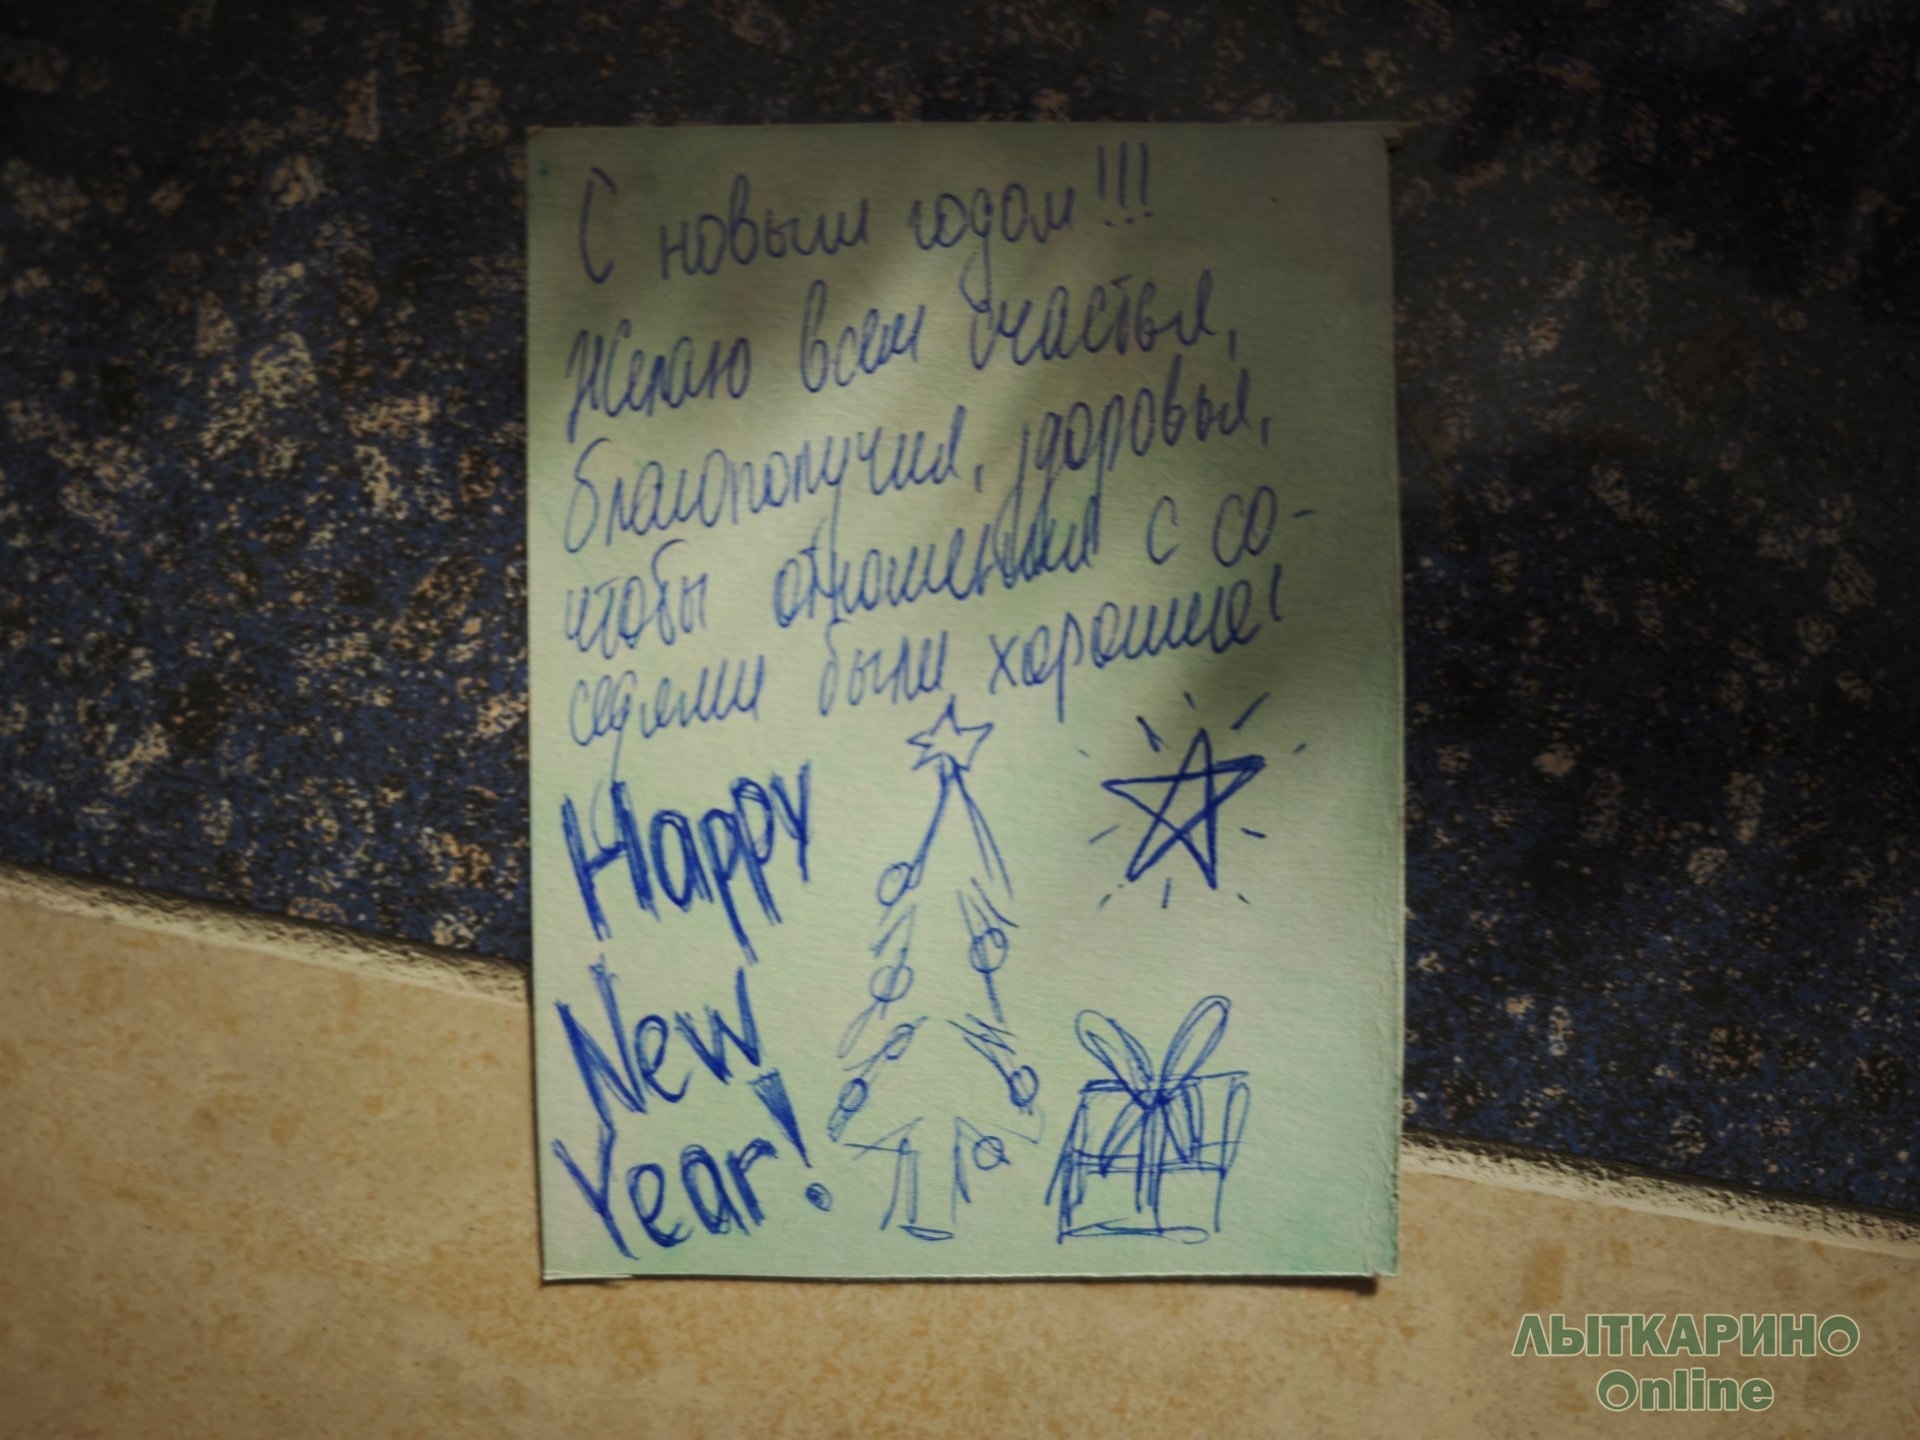 С новым годом!!!
Желаю всем счастья,
благополучия, здоровья,
чтобы отношения с со-
седями были хорошие!
Happy
New
Year!
ЛЫТКАРИНО
Online